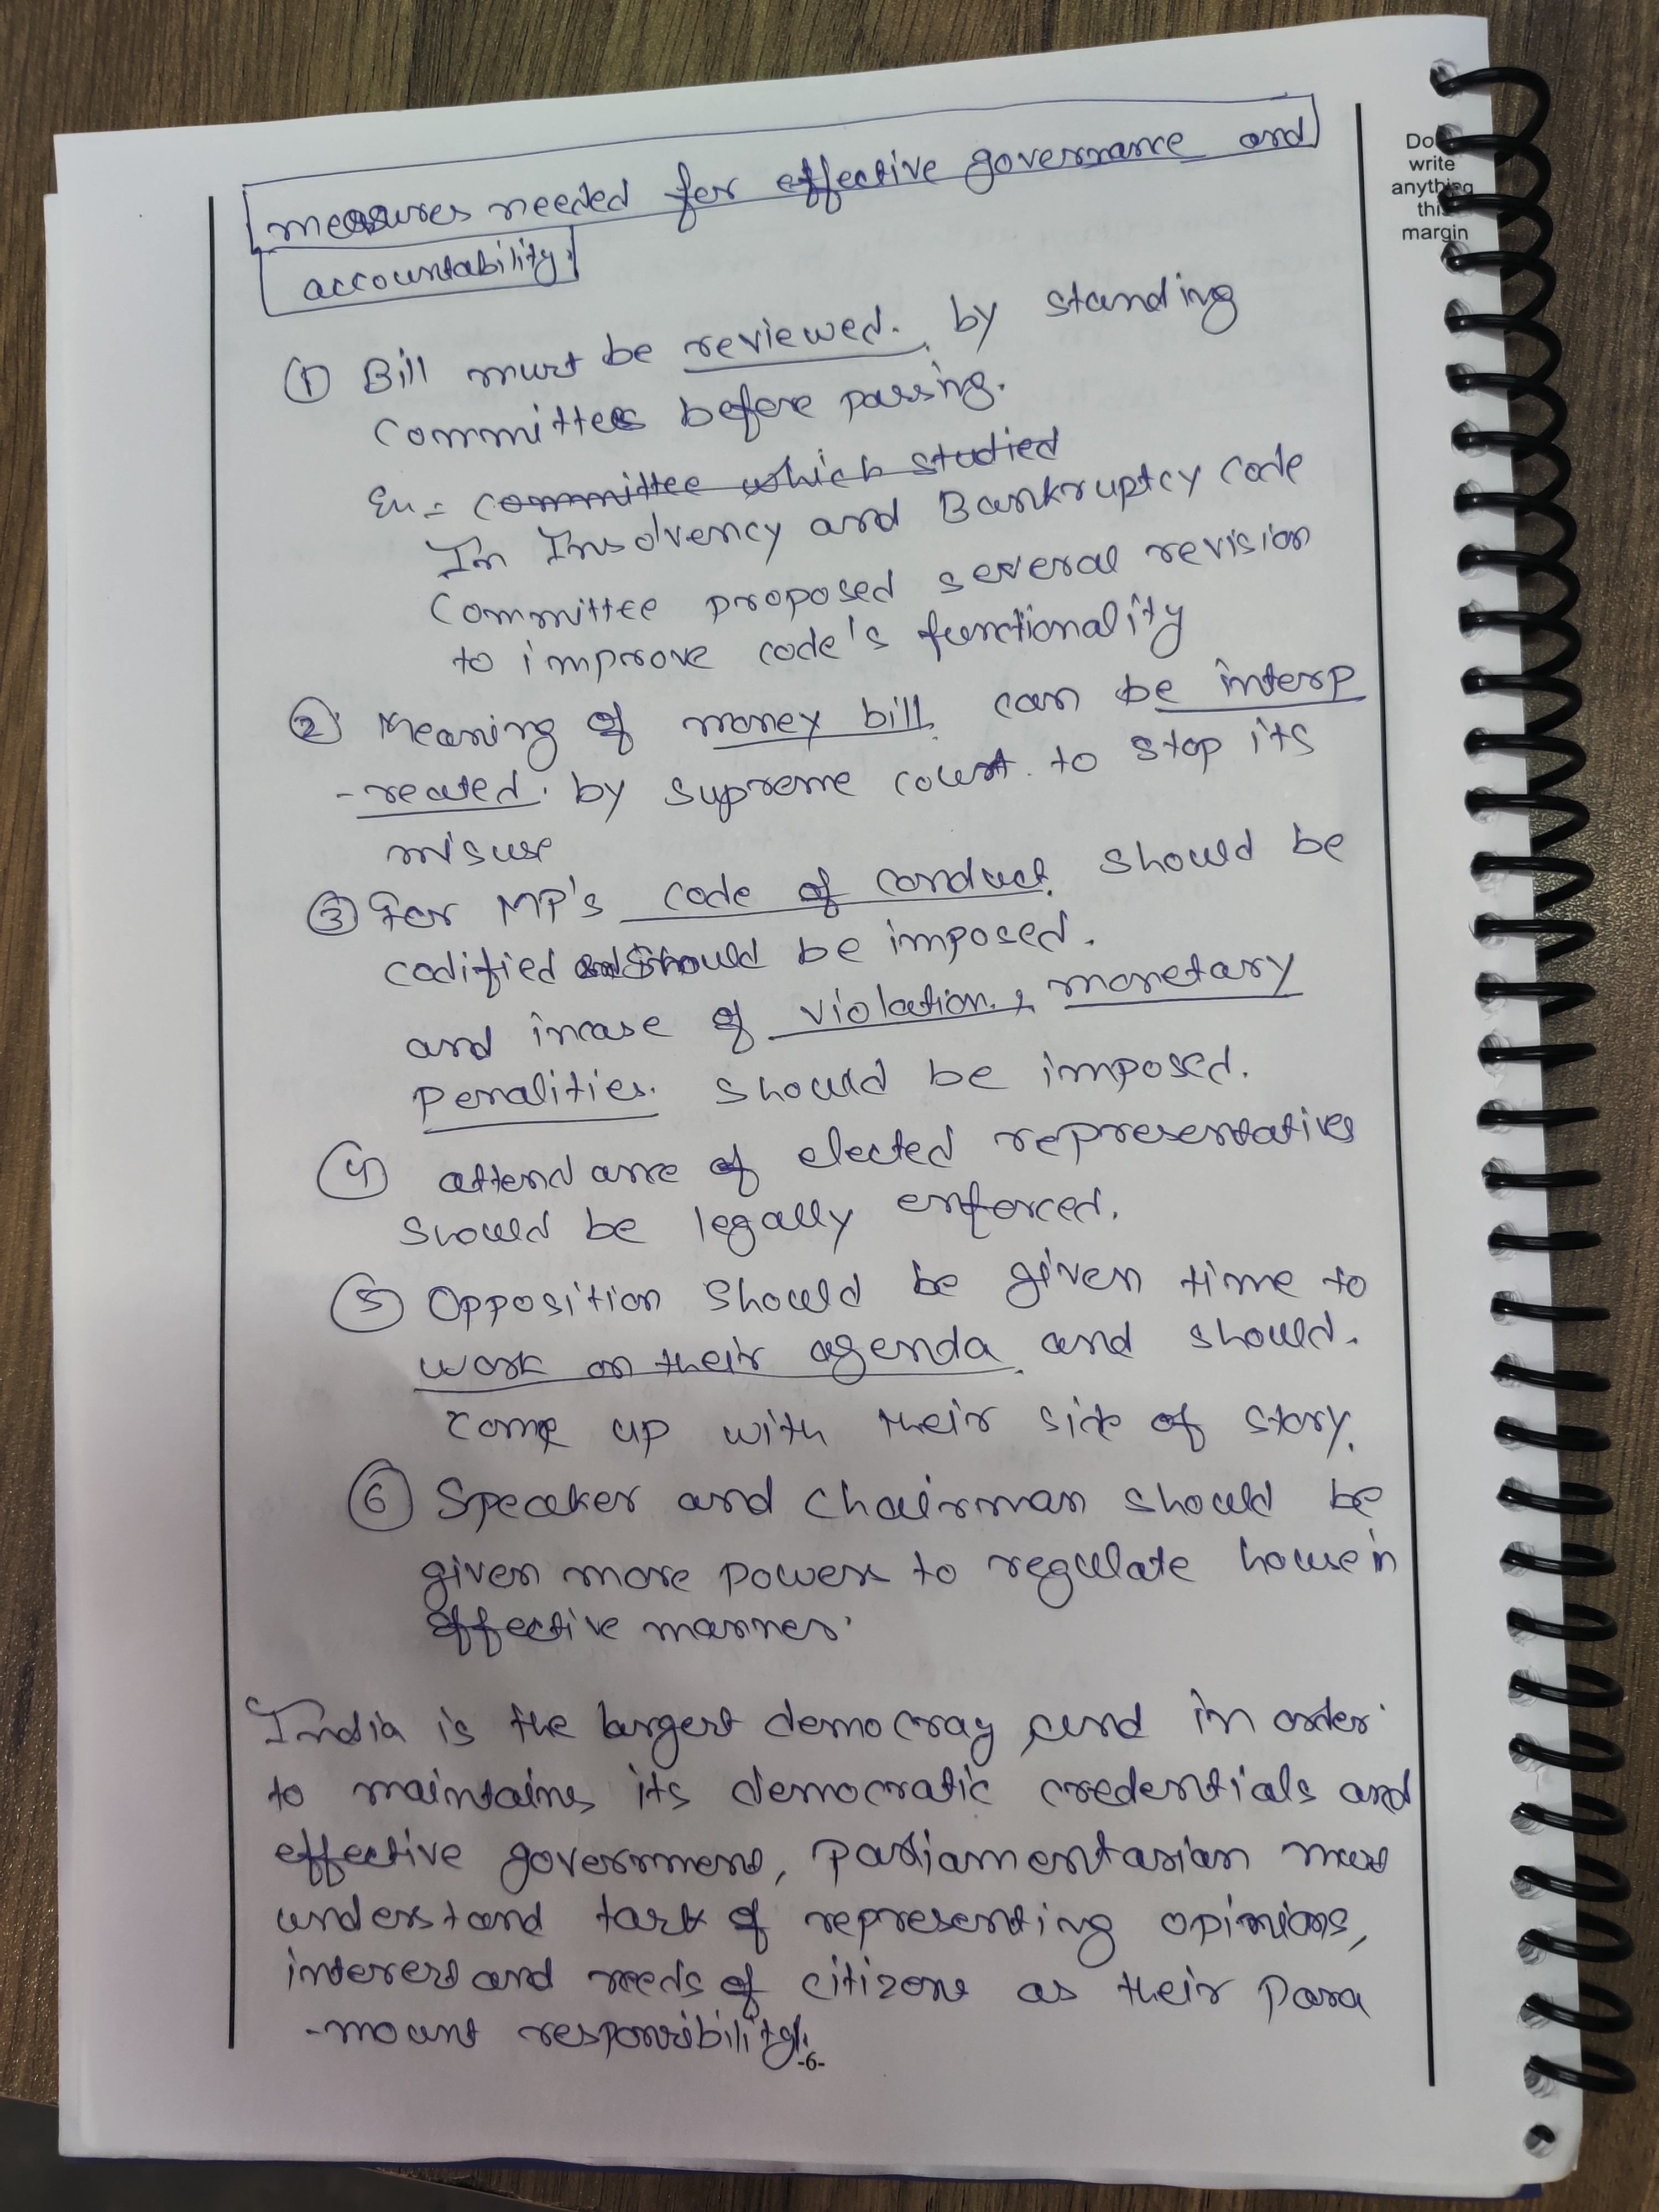 measures needed for effective governance and
accountability.
Do
write
anything
this
margin
① Bill must be reviewed. by standing
committees before passing.
Ex = committee which studied
In Insolvency and Bankruptcy Code
Committee proposed several revision
to improve code's functionality
② Meaning of money bill. can be interp
-reated. by supreme court. to stop its
misuse
③ For MP's code of conduct. should be
codified and should be imposed.
and incase of violation., monetary
penalities. should be imposed.
④ attendance of elected representatives
should be legally enforced.
⑤ Opposition should be given time to
work on their agenda. and should.
come up with their side of story.
⑥ Speaker and Chairman should be
given more powers to regulate house in
effective manner.
India is the largest democray and in order
to maintains its democratic credentials and
effective government, parliamentarian must
understand task of representing opinions,
interest and needs of citizens as their para
-mount responsibility.
-6-